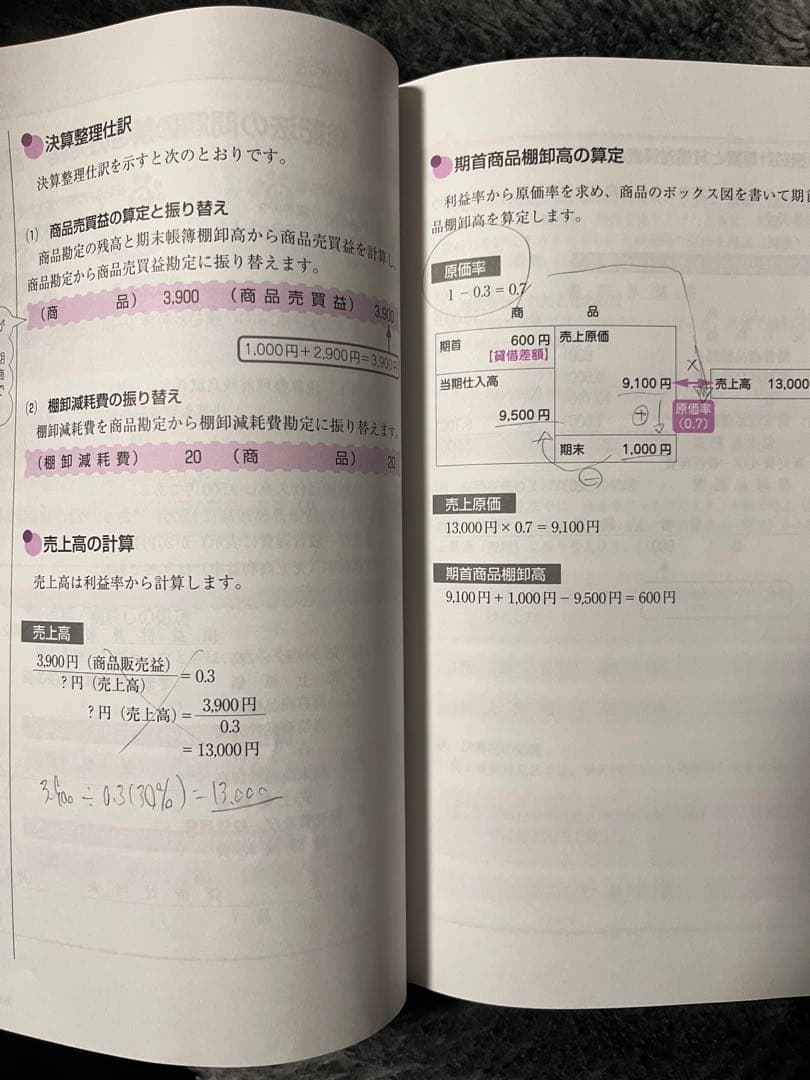 決算整理仕訳
決算整理仕訳を示すと次のとおりです。
(1) 商品売買益の算定と振り替え
商品勘定の残高と期末帳簿棚卸高から商品売買益を計算し、
商品勘定から商品売買益勘定に振り替えます。
(商 品) 3,900 (商品売買益) 3,900
1,000円+2,900円=3,900円
(2) 棚卸減耗費の振り替え
棚卸減耗費を商品勘定から棚卸減耗費勘定に振り替えます。
(棚卸減耗費) 20 (商 品) 20
売上高の計算
売上高は利益率から計算します。
売上高
3,900円(商品販売益)
?円(売上高)
= 0.3
?円(売上高)= 3,900円
0.3
= 13,000円
3900 ÷ 0.3(30%) = 13.000
期首商品棚卸高の算定
利益率から原価率を求め、商品のボックス図を書いて期首
品棚卸高を算定します。
原価率
1 − 0.3 = 0.7
商 品
期首 600円
【貸借差額】
売上原価
当期仕入高
9,100円
売上高 13,000
×
9,500円
⊕
原価率
(0.7)
期末 1,000円
⊖
売上原価
13,000円 × 0.7 = 9,100円
期首商品棚卸高
9,100円 + 1,000円 − 9,500円 = 600円